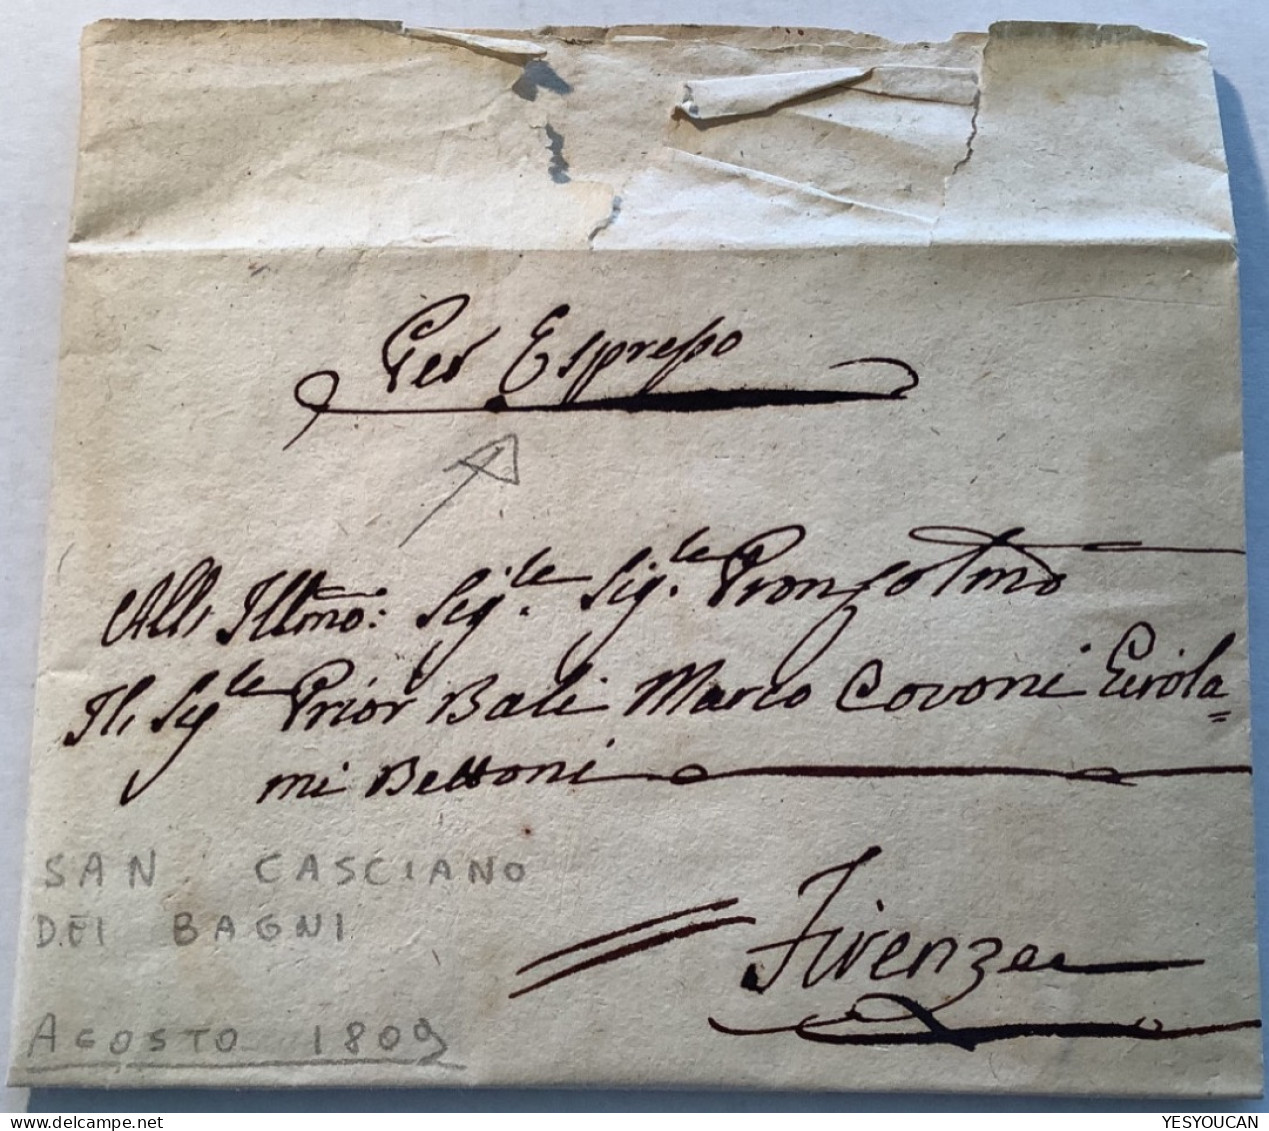 Per Espresso
All' Illmo: Sig.le Sig.le Pron Colmo
Il Sig.le Prior Bali Marco Covoni Girola=
mi Bettoni
Firenze
SAN CASCIANO
DEI BAGNI
AGOSTO 1809
delcampe.net
YESYOUCAN